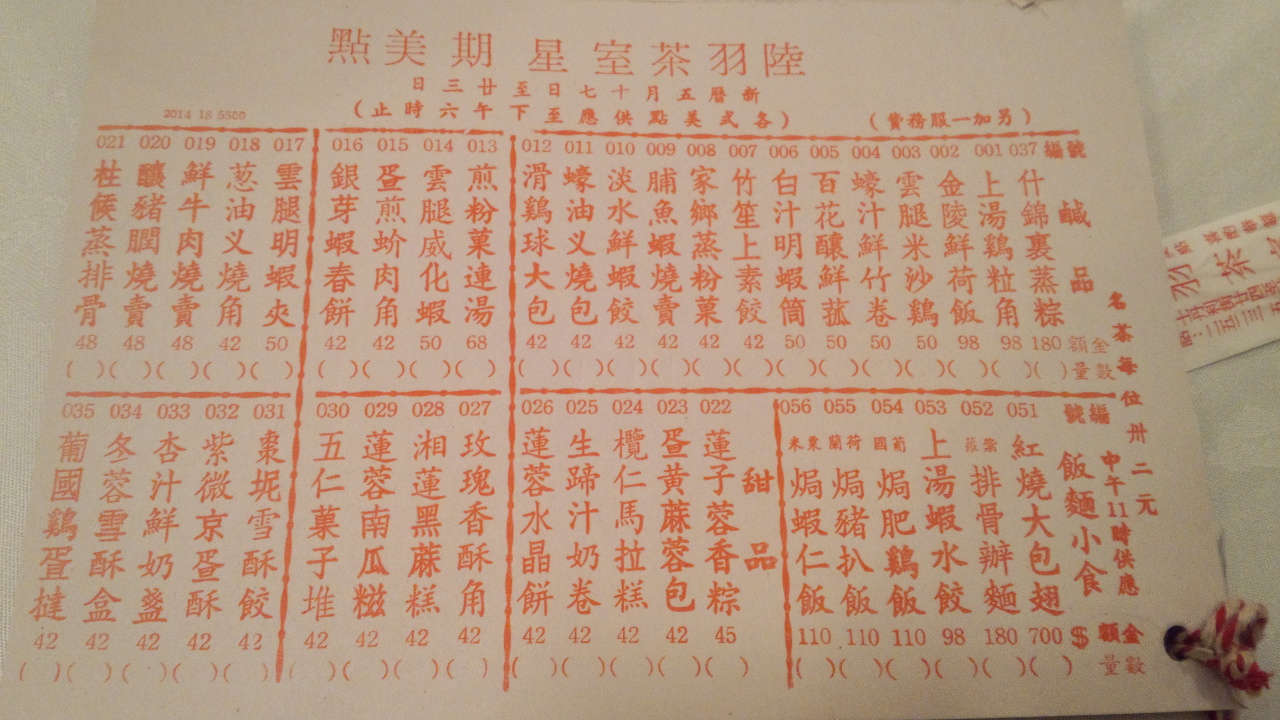 陸羽茶室星期美點
新曆五月十七日至廿三日
(另加一服務費)
(各式美點供應至下午六時止)
2014 18 5500
名茶每位卅二元
編號 鹹品 金額 數量
037 什錦裹蒸粽 180 ( )
001 上湯鷄粒角 98 ( )
002 金陵鮮荷飯 98 ( )
003 雲腿米沙鷄 50 ( )
004 蠔汁鮮竹卷 50 ( )
005 百花釀鮮菰 50 ( )
006 白汁明蝦筒 50 ( )
007 竹笙上素餃 42 ( )
008 家鄉蒸粉菓 42 ( )
009 脯魚蝦燒賣 42 ( )
010 淡水鮮蝦餃 42 ( )
011 蠔油义燒包 42 ( )
012 滑鷄球大包 42 ( )
013 煎粉菓連湯 68 ( )
014 雲腿威化蝦 50 ( )
015 蛋煎蚧肉角 42 ( )
016 銀芽蝦春餅 42 ( )
017 雲腿明蝦夾 50 ( )
018 葱油义燒角 42 ( )
019 鮮牛肉燒賣 48 ( )
020 釀豬膶燒賣 48 ( )
021 柱候蒸排骨 48 ( )
編號 飯麵小食 中午11時供應 $ 金額 數量
051 紅燒大包翅 700 ( )
052 紫蘿排骨辦麵 180 ( )
053 上湯蝦水餃 98 ( )
054 葡國焗肥鷄飯 110 ( )
055 荷蘭焗豬扒飯 110 ( )
056 粟米焗蝦仁飯 110 ( )
甜品
022 蓮子蓉香粽 45 ( )
023 蛋黃蔴蓉包 42 ( )
024 欖仁馬拉糕 42 ( )
025 生蹄汁奶卷 42 ( )
026 蓮蓉水晶餅 42 ( )
027 玫瑰香酥角 42 ( )
028 湘蓮黑蔴糕 42 ( )
029 蓮蓉南瓜糍 42 ( )
030 五仁菓子堆 42 ( )
031 棗坭雪酥餃 42 ( )
032 紫微京蛋酥 42 ( )
033 杏汁鮮奶盞 42 ( )
034 冬蓉雪酥盒 42 ( )
035 葡國鷄蛋撻 42 ( )
羽茶